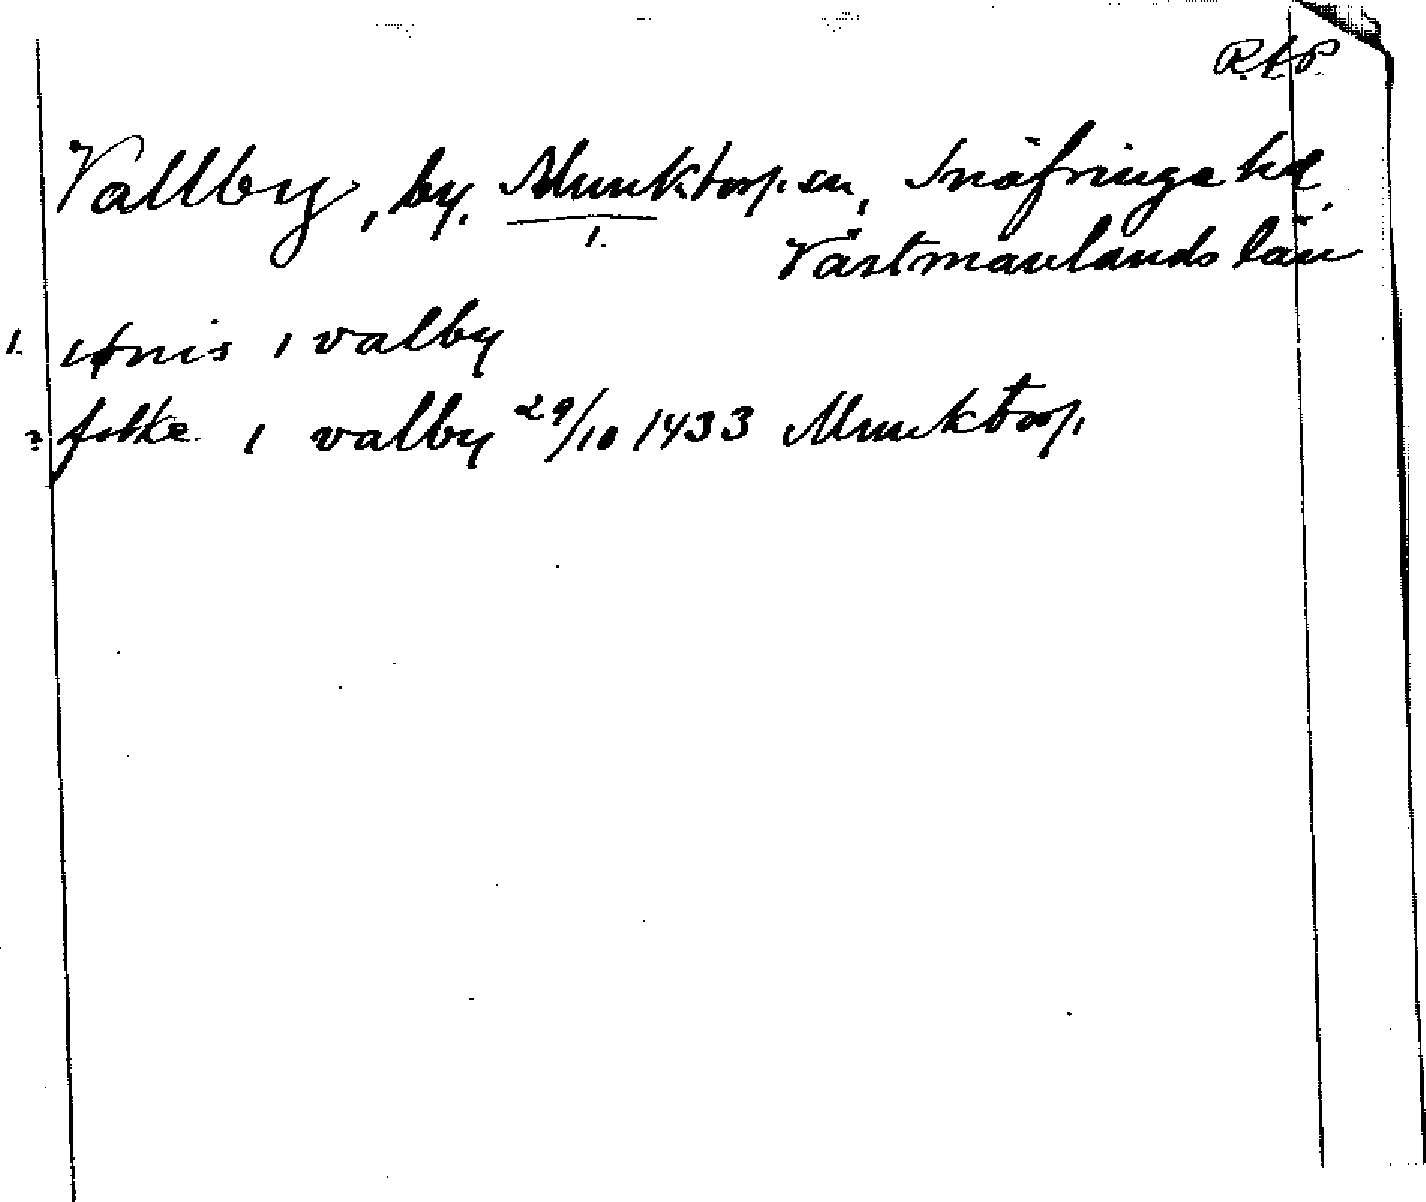 R.A.P.
Vallby, by, Munktorps sn, Snäfringe hd,
1. Västmanlands län
1. Anis i valby
2 folke i valby 29/10 1433 Munktorp